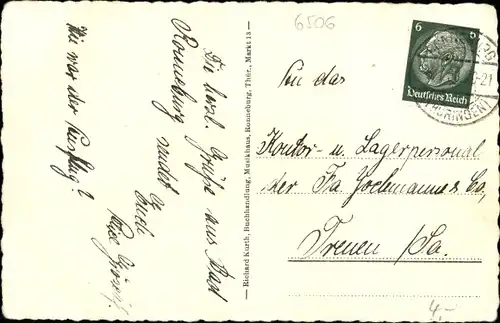 6506
Die herzl. Grüße aus Bad
Ronneburg sendet
Euch
Wie war der Ausflug?
Richard Kurth, Buchhandlung, Musikhaus, Ronneburg, Thür., Markt 13
6
Deutsches Reich
(THÜRINGEN)
An das
Kontor- u. Lagerpersonal
der Fa. Jochmann & Co,
Treuen /Sa.
4,-